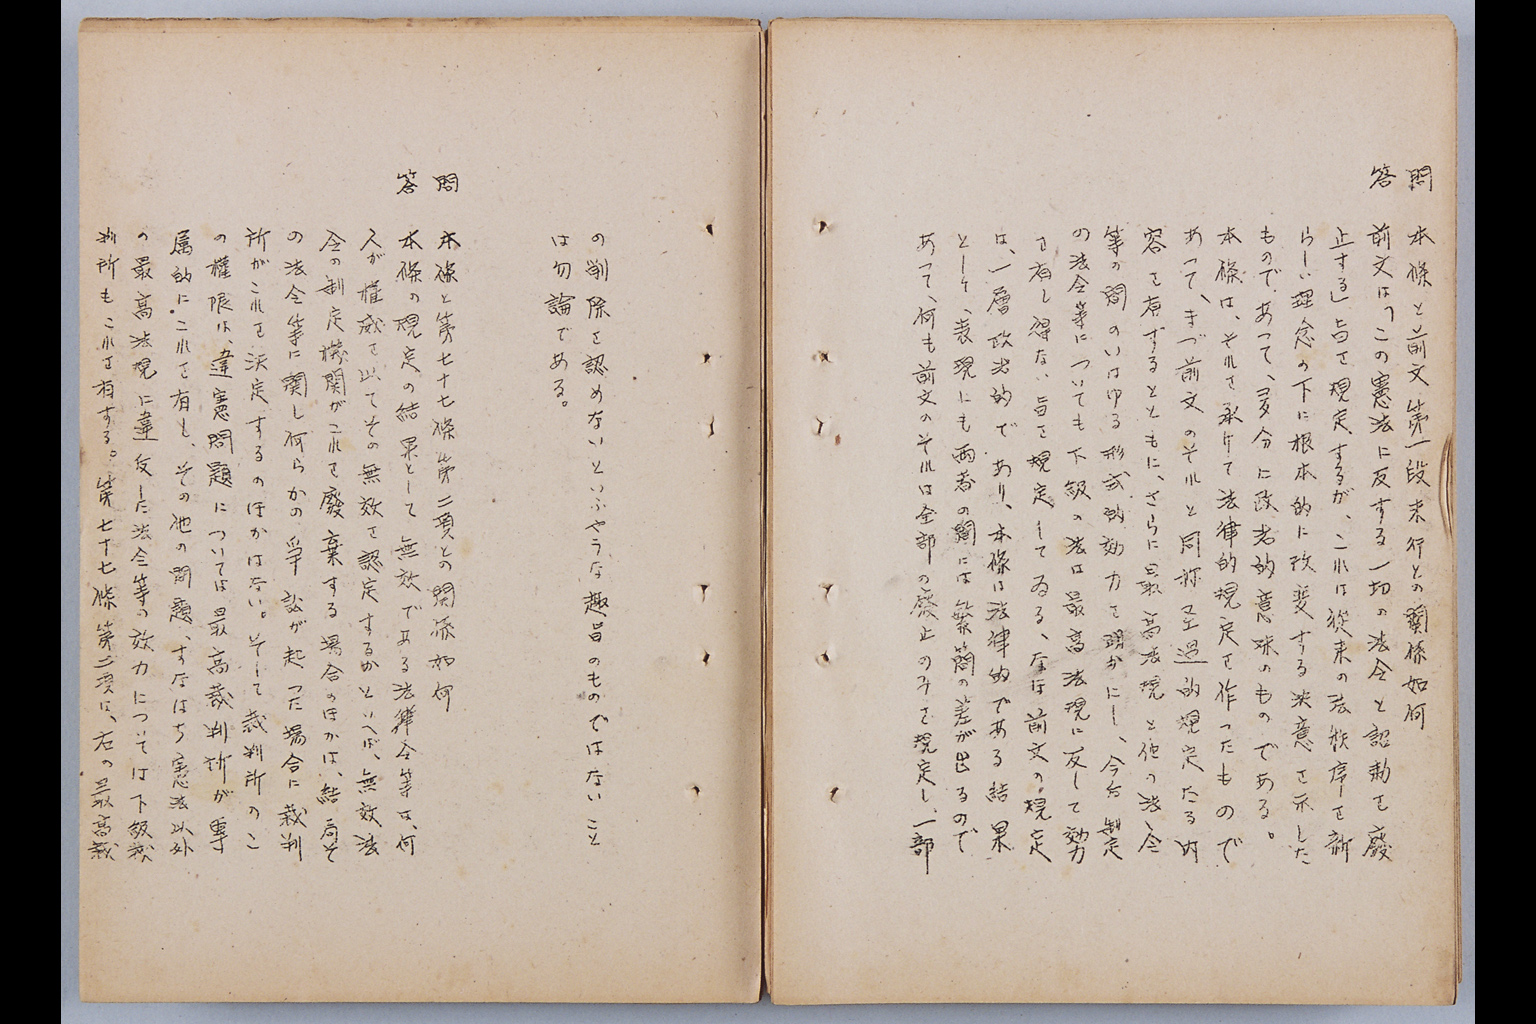 問 本條と前文第一段末行との關係如何
答 前文は「この憲法に反する一切の法令と詔勅を廢
止する」旨を規定するが、これは從來の法秩序を新
らしい理念の下に根本的に改變する決意を示した
もので、あつて、多分に政治的意味のものである。
本條は、それを承けて法律的規定を作つたもので
あつて、まづ前文のそれと同趣旨的規定たる内
容を有するとともに、さらに最高法規と他の法令
等の間のいはゆる形式的効力を明かにし、今后制定
の法令等についても下級の法は最高法規に反して効力
を有し得ない旨を規定してゐる、なほ前文の規定
は、一層政治的であり、本條は法律的である結果
として、表現にも両者の間には繁簡の差が出るので
あつて、何も前文のそれは全部の廢止のみを規定し、一部
の削除を認めないといふやうな趣旨のものではないこと
は勿論である。
問 本條と第七十七條第二項との関係如何
答 本條の規定の結果として無效である法律令等は、何
人が權威を以てその無效を認定するかといへば、無效法
令の制定機関がこれを廢棄する場合のほかは、結局そ
の法令等に関し何らかの爭訟が起つた場合に裁判
所がこれを決定するのほかはない。そして裁判所のこ
の權限は、違憲問題については最高裁判所が專
属的にこれを有し、その他の問題、すなはち憲法以外
の最高法規に違反した法令等の效力については下級裁
判所もこれを有する。第七十七條第二項は、右の最高裁